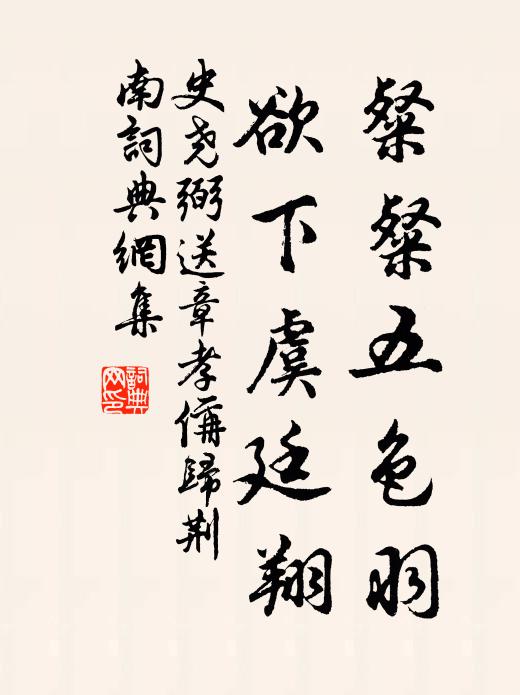 粲粲五色羽
欲下虞廷翔
史尧弼送章孝偁歸荆
南詞典網集
詞典網印